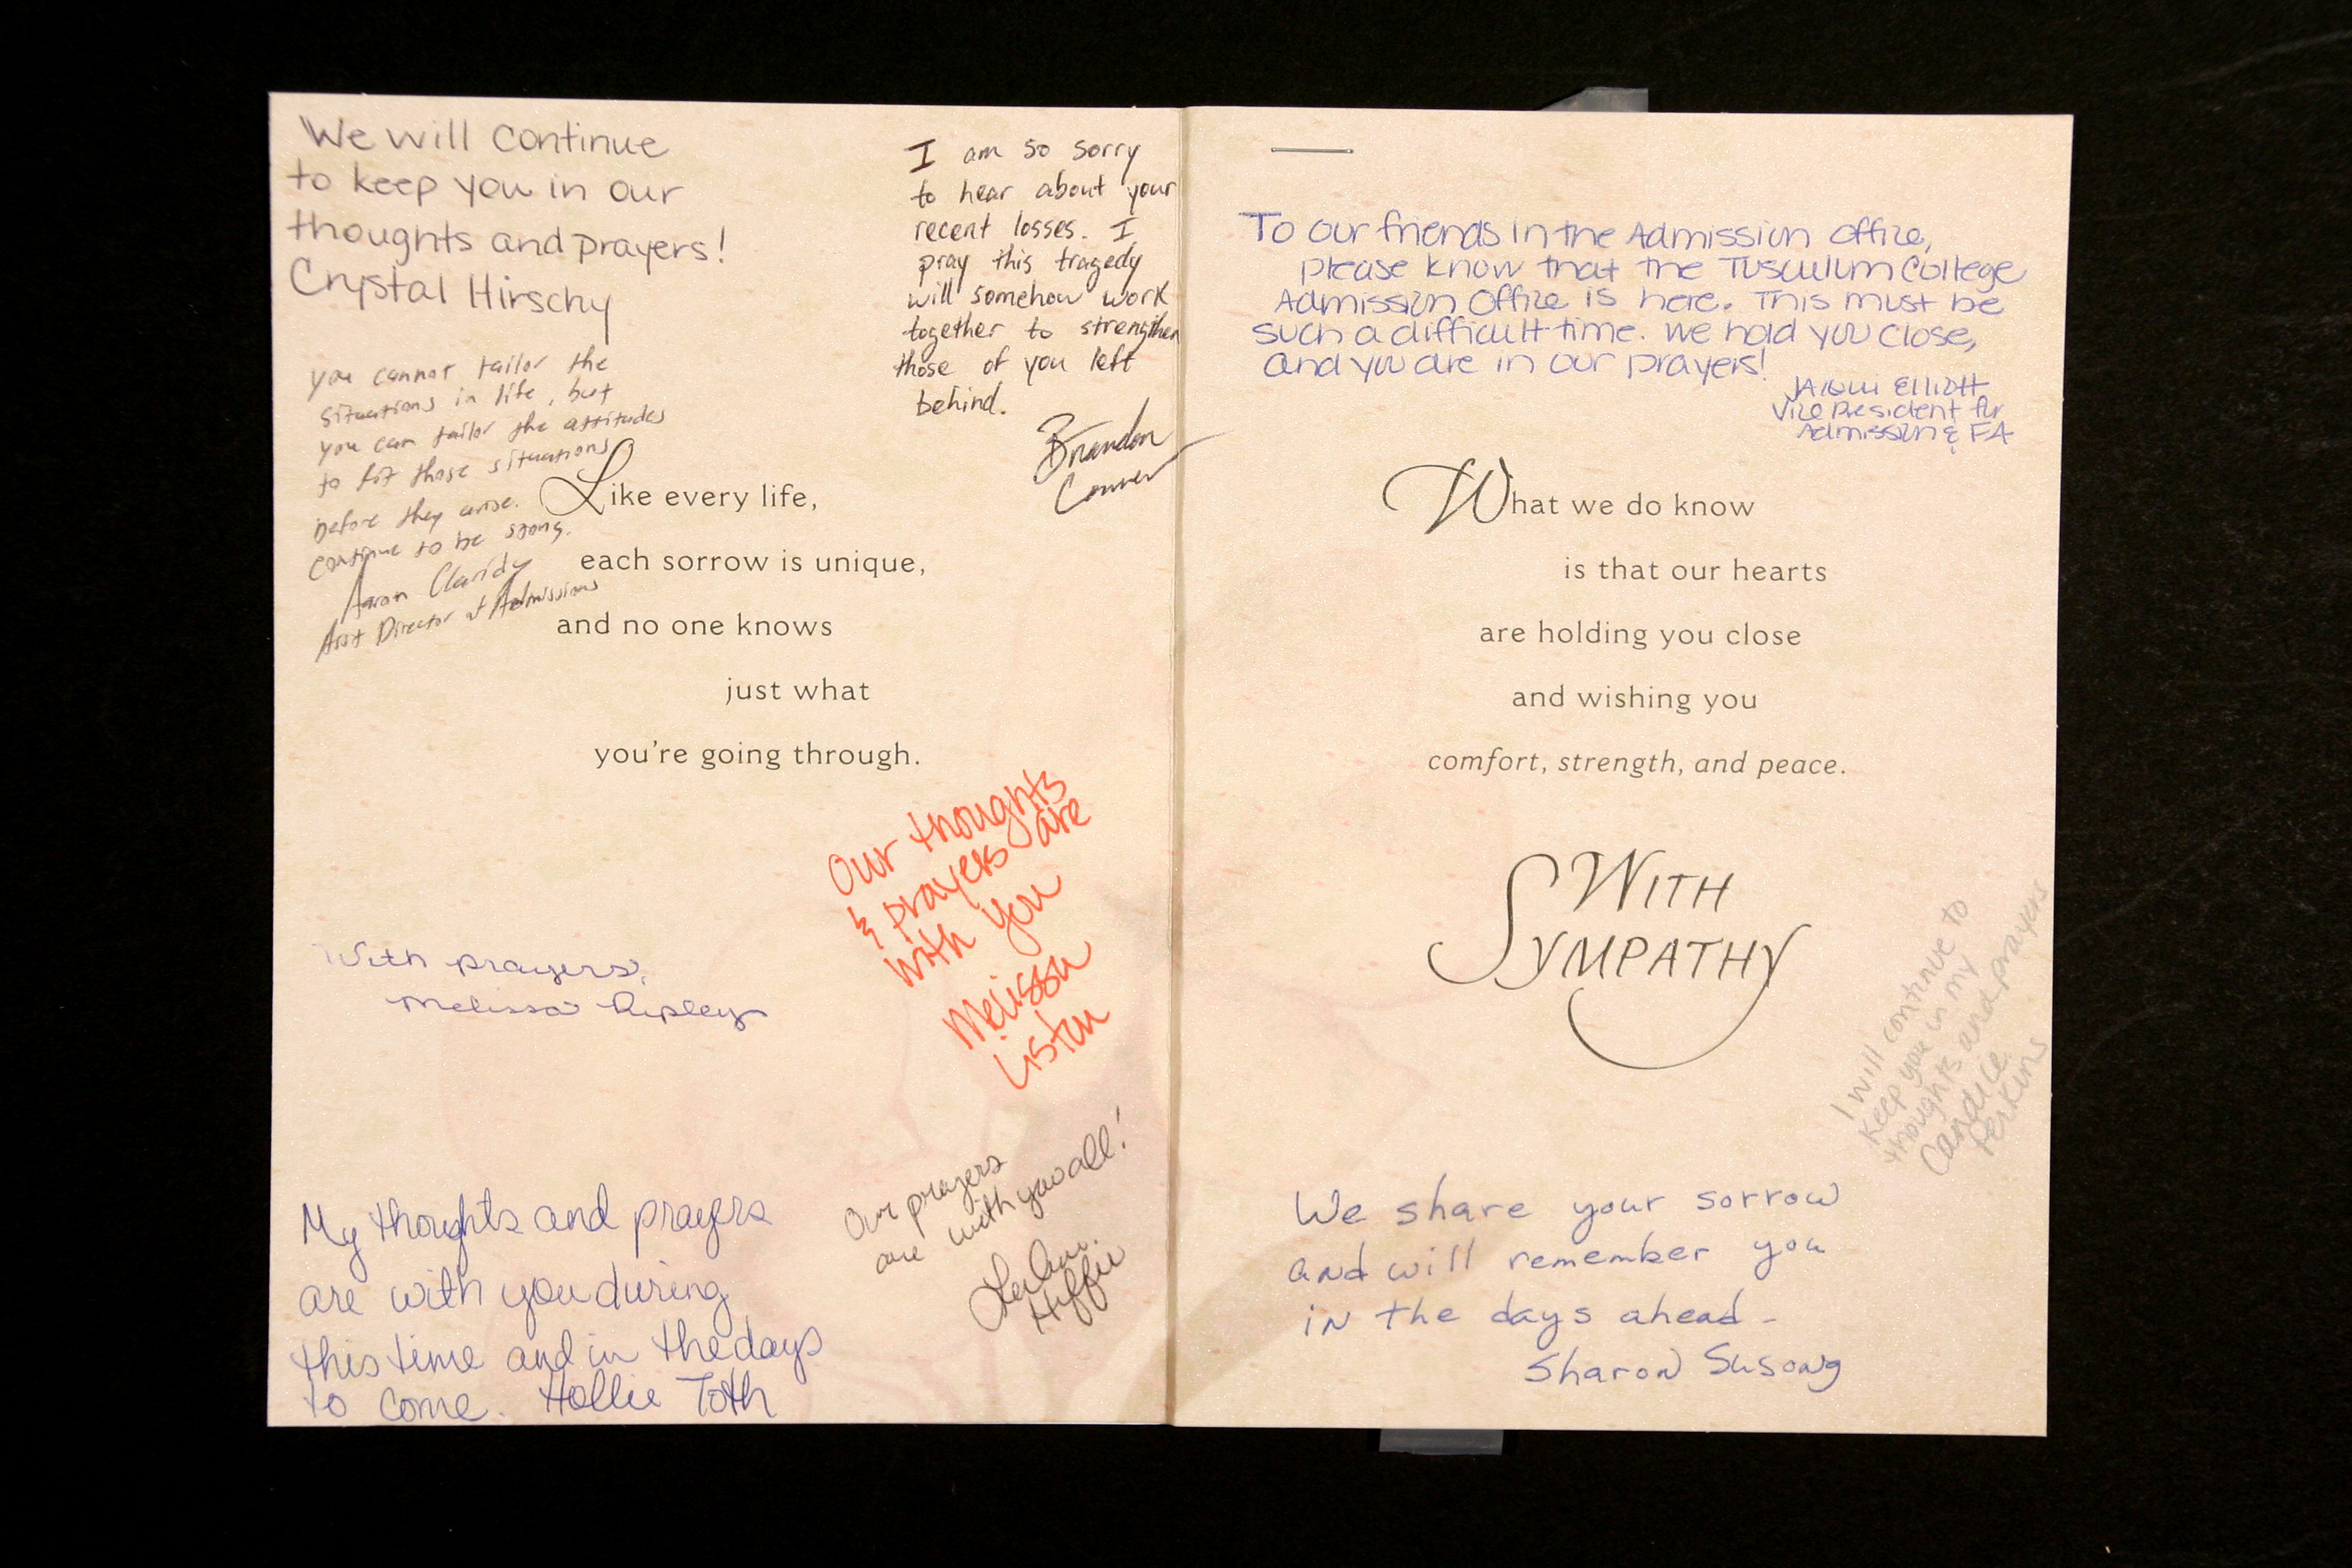 We will continue
to keep you in our
thoughts and prayers!
Crystal Hirschy
you cannot tailor the
situations in life, but
you can tailor the attitudes
to fit those situations
before they arise.
continue to be strong.
Aaron Claridy
Asst Director of Admissions
I am so sorry
to hear about your
recent losses. I
pray this tragedy
will somehow work
together to strengthen
those of you left
behind.
Brandon
Conner
Like every life,
each sorrow is unique,
and no one knows
just what
you're going through.
Our thoughts
& prayers are
with you
Melissa
With prayers,
Melissa Ripley
Our prayers
are with you all!
My thoughts and prayers
are with you during
this time and in the days
to come. Hollie Toth
To our friends in the Admission Office,
please know that the Tusculum College
Admission Office is here. This must be
such a difficult time. We hold you close,
and you are in our prayers!
Elliott
Vice President for
Admission & FA
What we do know
is that our hearts
are holding you close
and wishing you
comfort, strength, and peace.
WITH
SYMPATHY
I will continue to
keep you in my
thoughts and prayers
Candice
Perkins
We share your sorrow
and will remember you
in the days ahead -
Sharon Susong